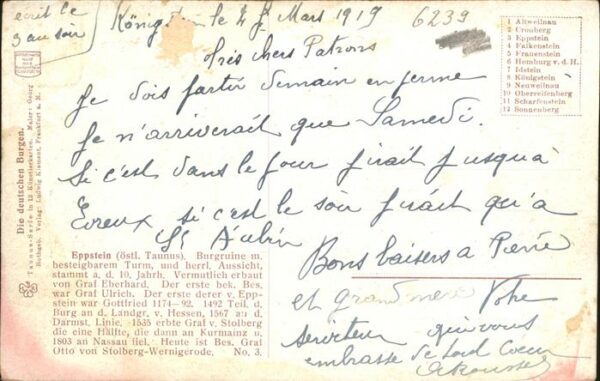 écrit le
3 au soir
Königstein le 2 Mars 1919
6239
Très chers Patrons
Je dois partir demain en ferme
Je n'arriverait que Samedi.
Si c'est dans le jour j'irait jusqu'à
Evreux si c'est le soir j'irait qu'à
St Aubin
Bons baisers a Pierre
et grand mere Votre
serviteur qui vous
embrasse de tout Coeur
1 Altweilnau
2 Cronberg
3 Eppstein
4 Falkenstein
5 Frauenstein
6 Homburg v. d. H.
7 Idstein
8 Königstein
9 Neuweilnau
10 Oberreifenberg
11 Scharfenstein
12 Sonnenberg
Die deutschen Burgen.
Taunus-Serie in 12 Künstlerkarten. Maler: Georg
Rothgeb. Verlag: Ludwig Klement, Frankfurt a. M.
Eppstein (östl. Taunus), Burgruine m.
besteigbarem Turm, und herrl. Aussicht,
stammt a. d. 10. Jahrh. Vermutlich erbaut
von Graf Eberhard. Der erste bek. Bes.
war Graf Ulrich. Der erste derer v. Epp-
stein war Gottfried 1174-92. 1492 Teil d.
Burg an d. Landgr. v. Hessen, 1567 an d.
Darmst. Linie. 1535 erbte Graf v. Stolberg
die eine Hälfte, die dann an Kurmainz u.
1803 an Nassau fiel. Heute ist Bes. Graf
Otto von Stolberg-Wernigerode. No. 3.